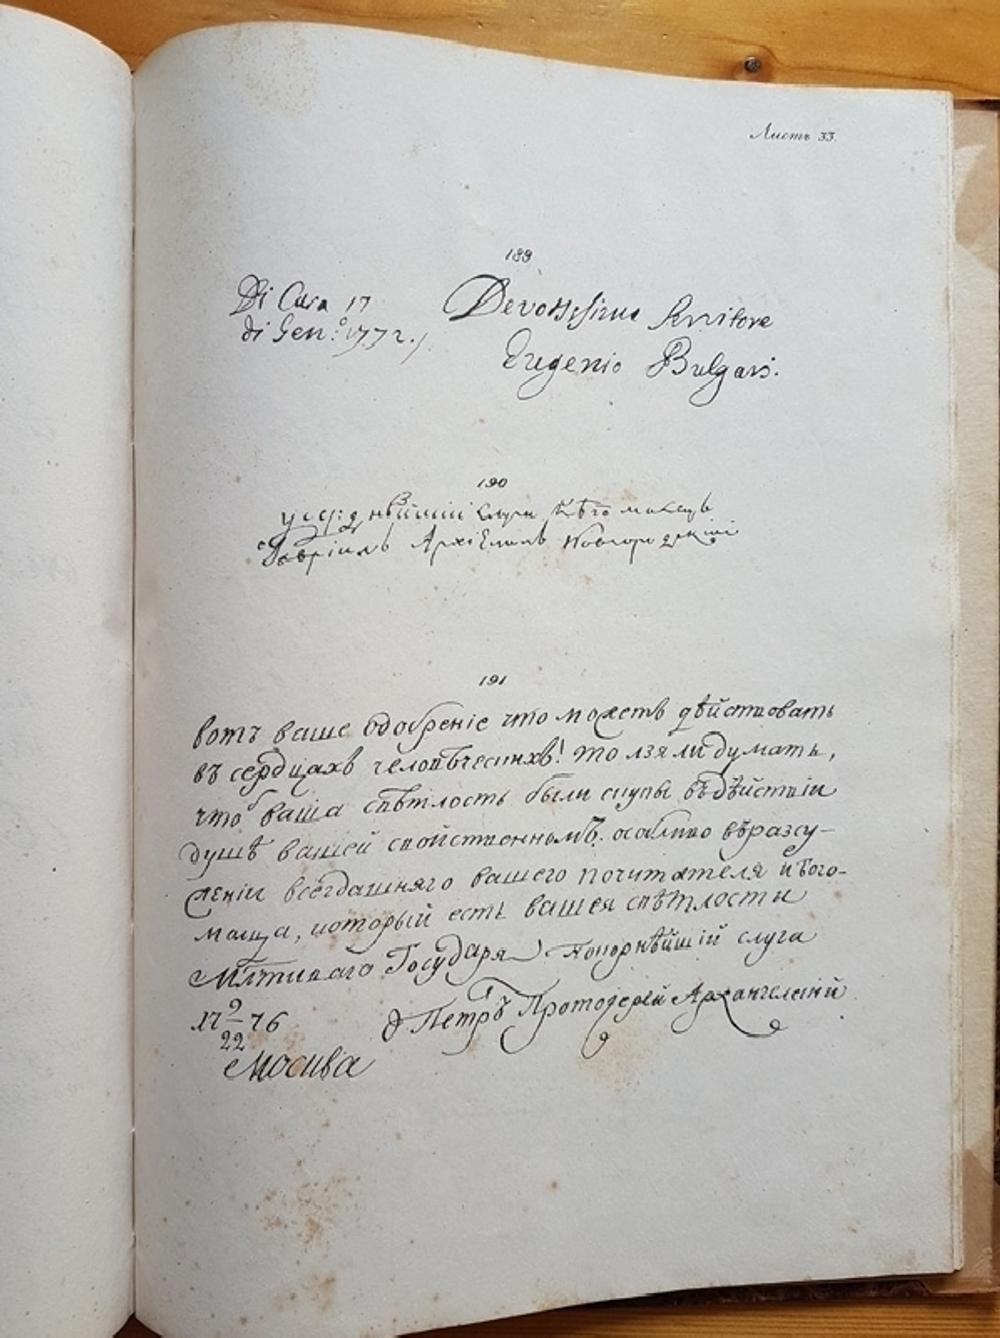 Листъ 33.
189
Di Casa 17
di Gen:º 1772./.
Devotissimo Servitore
Eugenio Bulgari.
190
усерднѣйшій слуга и бгомолецъ
Гавріилъ Архіепископъ Новгородскій
191
вотъ ваше одобреніе что можетъ дѣйствовать
въ сердцахъ человѣческихъ! то лзя ли думать,
чтобъ ваша свѣтлость были скупы въ дѣйствіи
душѣ вашей свойственномъ. особливо въ разсу-
жденіи всегдашняго вашего почитателя и бого-
молца, который есть вашея свѣтлости
Млтиваго Государя покорнѣйшій слуга
17 9/22 76
Петръ Протоіерей Архангелскій
Москва